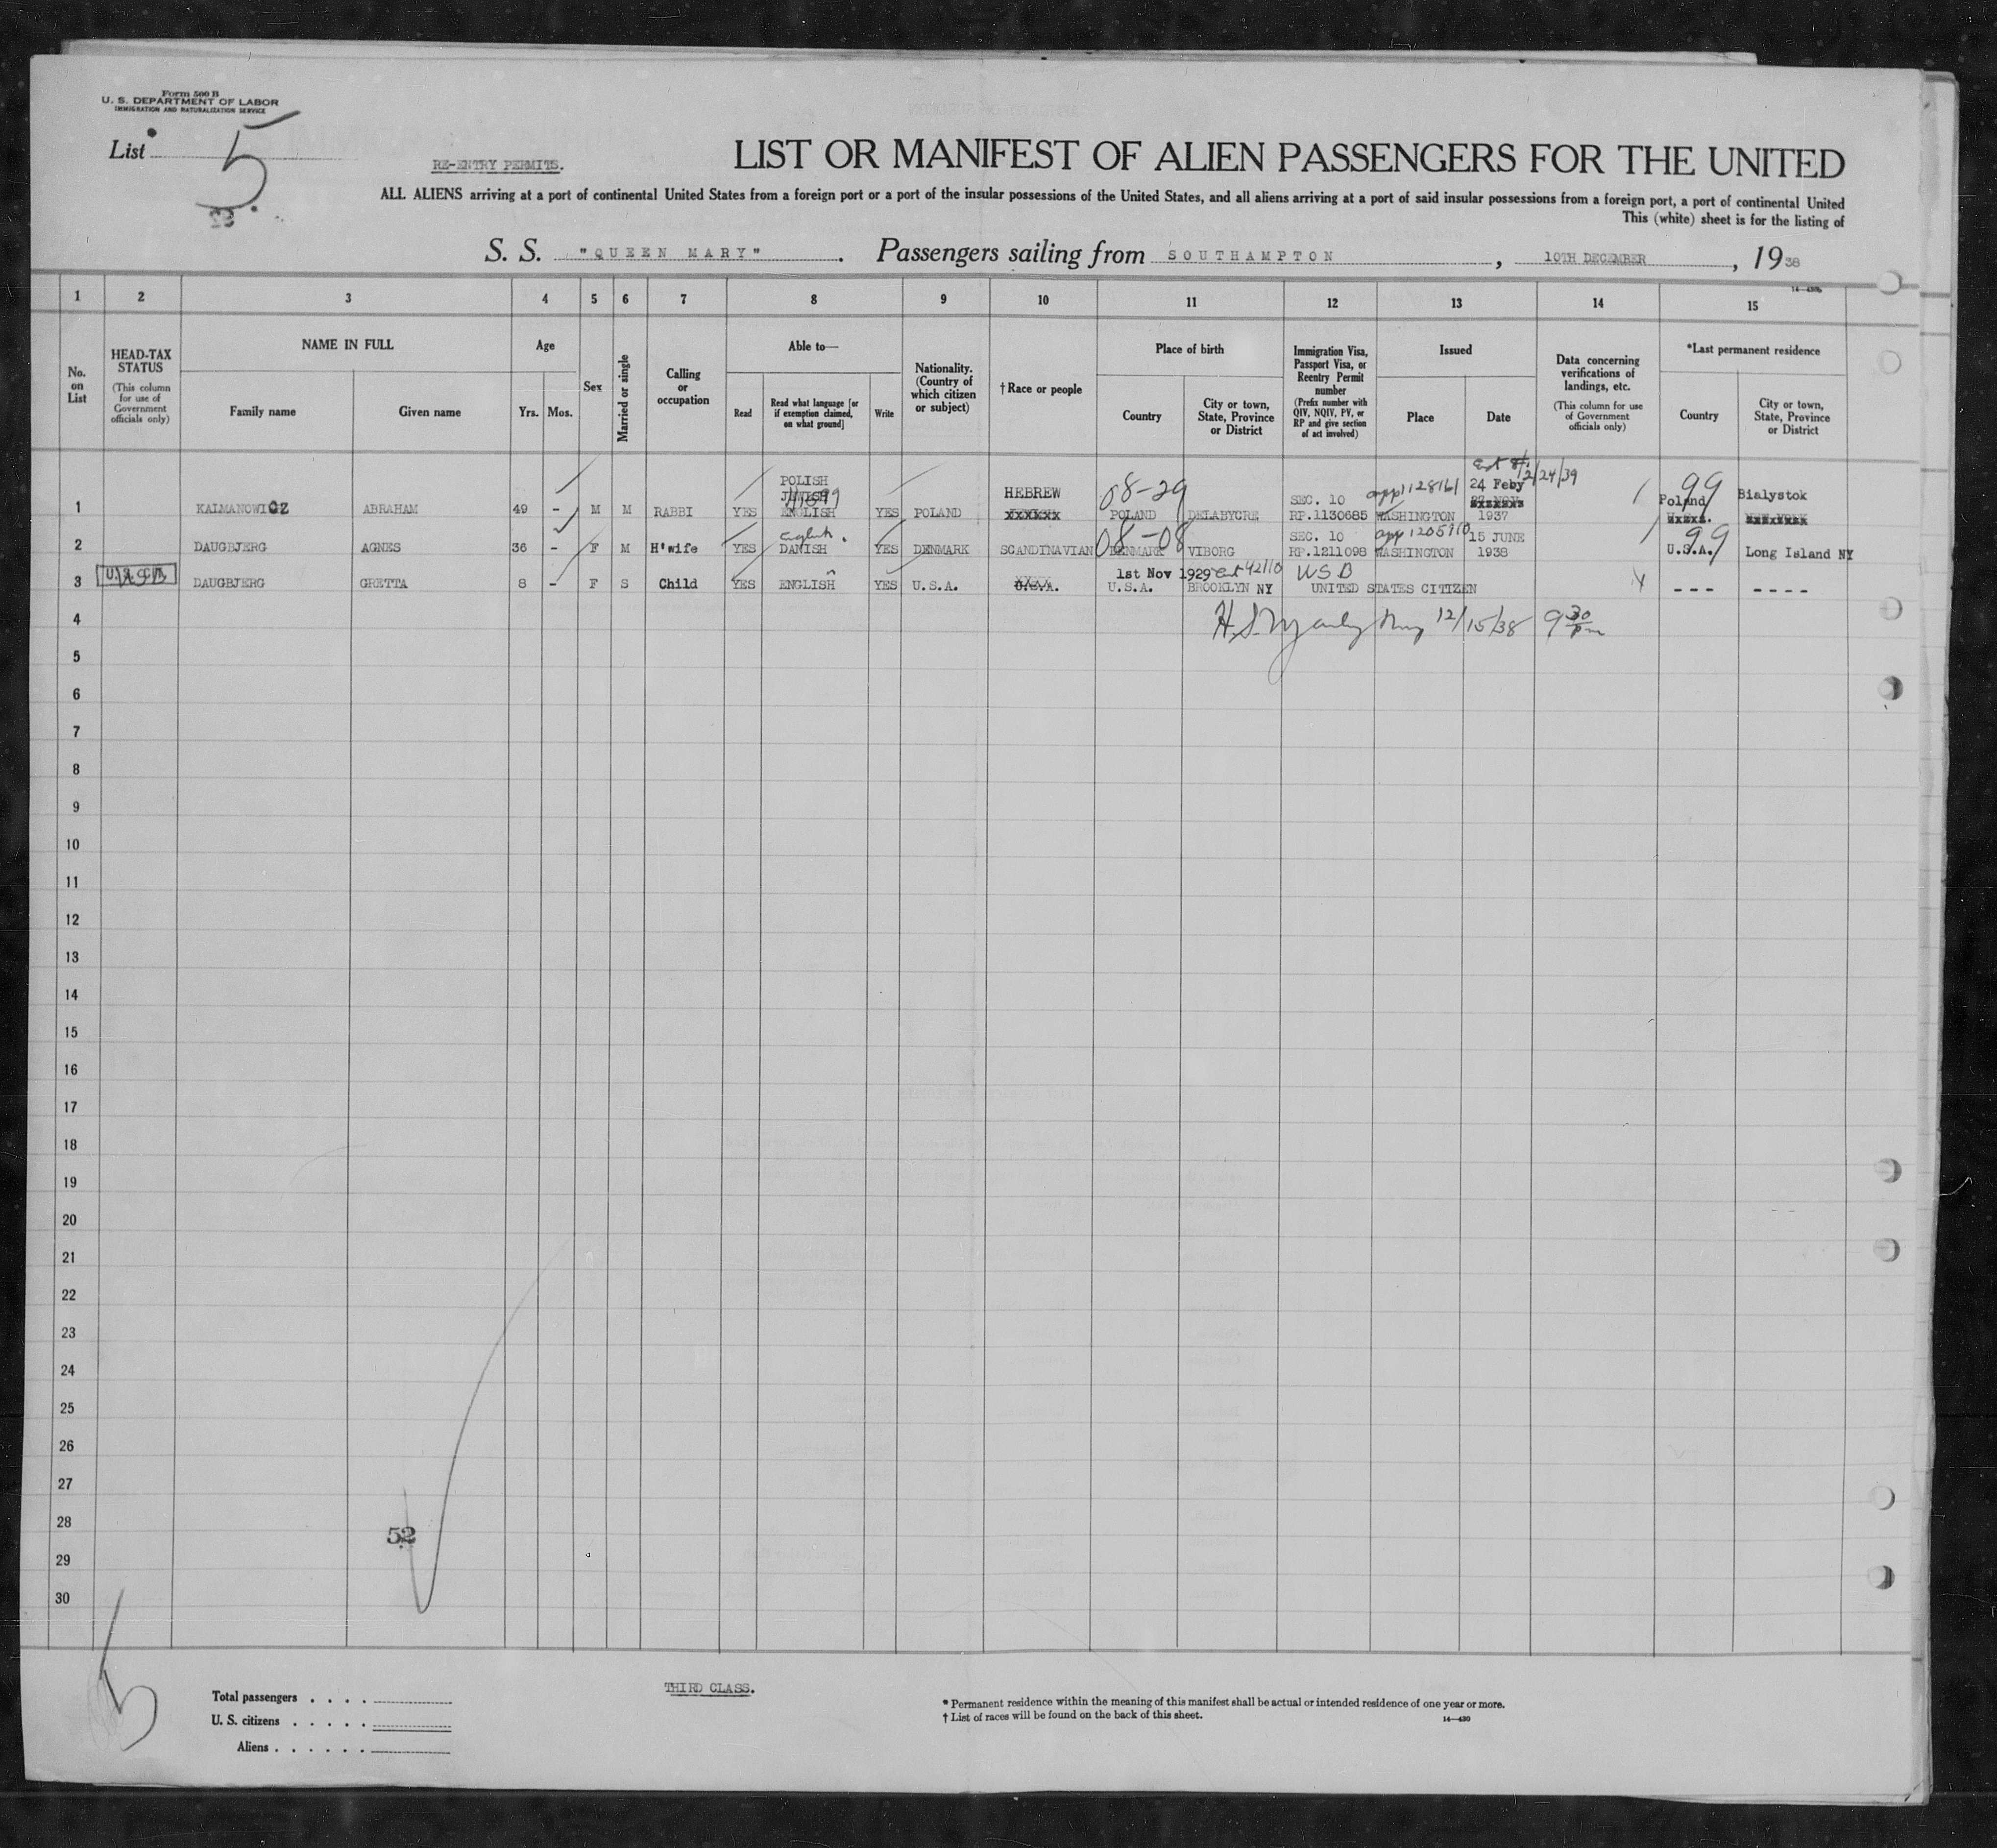 Form 500 B
U. S. DEPARTMENT OF LABOR
IMMIGRATION AND NATURALIZATION SERVICE
List 5
RE-ENTRY PERMITS.
LIST OR MANIFEST OF ALIEN PASSENGERS FOR THE UNITED
ALL ALIENS arriving at a port of continental United States from a foreign port or a port of the insular possessions of the United States, and all aliens arriving at a port of said insular possessions from a foreign port, a port of continental United
This (white) sheet is for the listing of
S. S. "QUEEN MARY". Passengers sailing from SOUTHAMPTON, 10TH DECEMBER, 1938
1 2 3 4 5 6 7 8 9 10 11 12 13 14 15
No. on List
HEAD-TAX STATUS (This column for use of Government officials only)
NAME IN FULL
Family name
Given name
Age
Yrs. Mos.
Sex
Married or single
Calling or occupation
Able to—
Read
Read what language [or if exemption claimed, on what ground]
Write
Nationality. (Country of which citizen or subject)
†Race or people
Place of birth
Country
City or town, State, Province or District
Immigration Visa, Passport Visa, or Reentry Permit number (Prefix number with QIV, NQIV, PV, or RP and give section of act involved)
Issued
Place
Date
Data concerning verifications of landings, etc. (This column for use of Government officials only)
*Last permanent residence
Country
City or town, State, Province or District
POLISH 2/24/39
JEWISH HEBREW 08-29 1128161 24 Feby 99
1 KALMANOWICZ ABRAHAM 49 - M M RABBI YES ENGLISH YES POLAND XXXXXX POLAND DELABYCRE SEC. 10 RP.1130685 WASHINGTON 1937 Poland Bialystok
2 DAUGBJERG AGNES 36 - F M H'wife YES DANISH YES DENMARK SCANDINAVIAN 08-08 DENMARK VIBORG SEC. 10 RP.1211098 app 1205710 WASHINGTON 15 JUNE 1938 99 U.S.A. Long Island NY
3 DAUGBJERG GRETTA 8 - F S Child YES ENGLISH YES U.S.A. U.S.A. 1st Nov 1929 U.S.A. BROOKLYN NY USB UNITED STATES CITIZEN --- ----
4 12/15/38 9 30 pm
5
6
7
8
9
10
11
12
13
14
15
16
17
18
19
20
21
22
23
24
25
26
27
28
52
29
30
5
Total passengers . . . .
U. S. citizens . . . . .
Aliens . . . . . .
THIRD CLASS.
* Permanent residence within the meaning of this manifest shall be actual or intended residence of one year or more.
† List of races will be found on the back of this sheet.
14—430